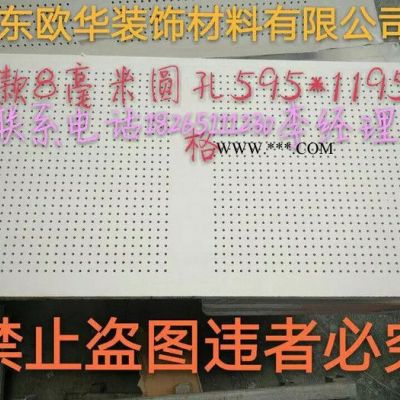 东欧华装饰材料有限公司
款8毫米圆孔595*1195
联系电话18265111230李经理
格 www.***.com
禁止盗图违者必究